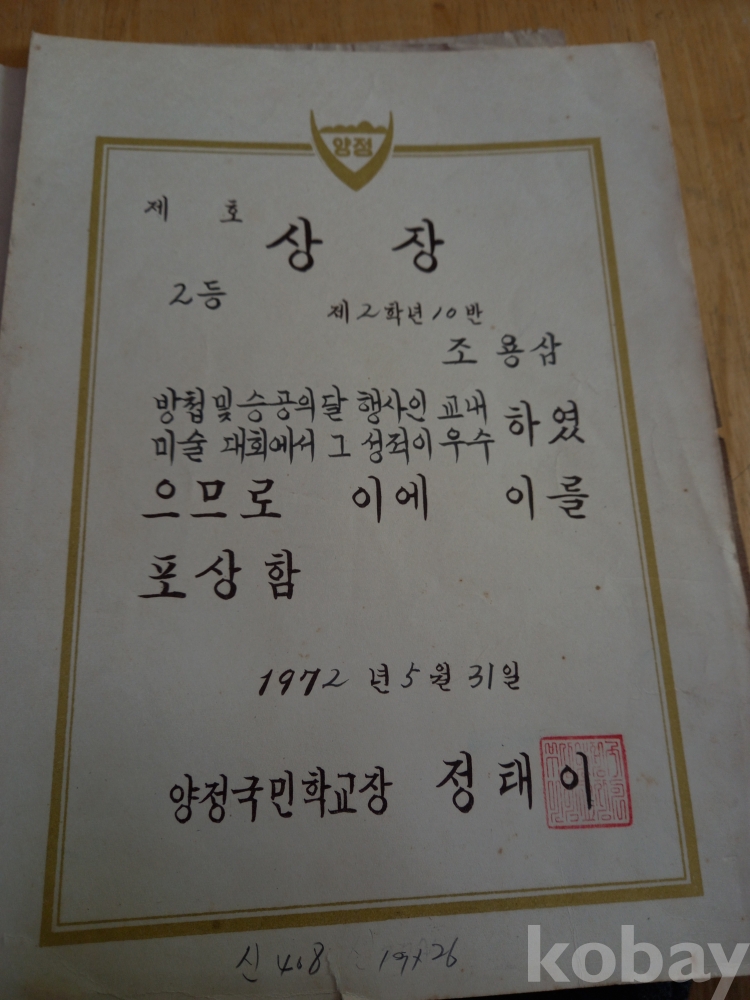 양정
제 호
상 장
2등
제2학년10반
조용삼
방첩및승공의달 행사인 교내
미술 대회에서 그 성적이우수 하였
으므로 이에 이를
포상함
1972년5월31일
양정국민학교장 정태이
신 408 19x26
kobay